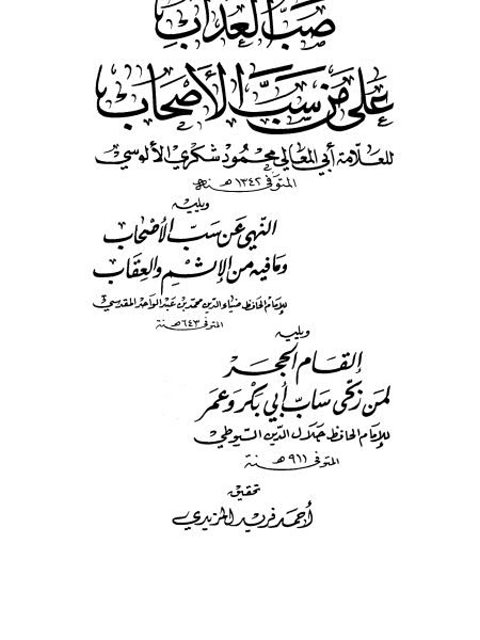 صَبّ العذاب
على من سَبَّ الأصحاب
للعلامة أبي المعالي محمود شكري الألوسي
المتوفى ١٣٤٢ هـ سنة
ويليه
النهي عن سبّ الأصحاب
وما فيه من الإثم والعقاب
للإمام الحافظ ضياء الدين محمد بن عبد الواحد المقدسي
المتوفى ٦٤٣ هـ سنة
ويليه
إلقام الحجر
لمن زكى سابّ أبي بكر وعمر
للإمام الحافظ جلال الدين السيوطي
المتوفى ٩١١ هـ سنة
تحقيق
أحمد فريد المزيدي